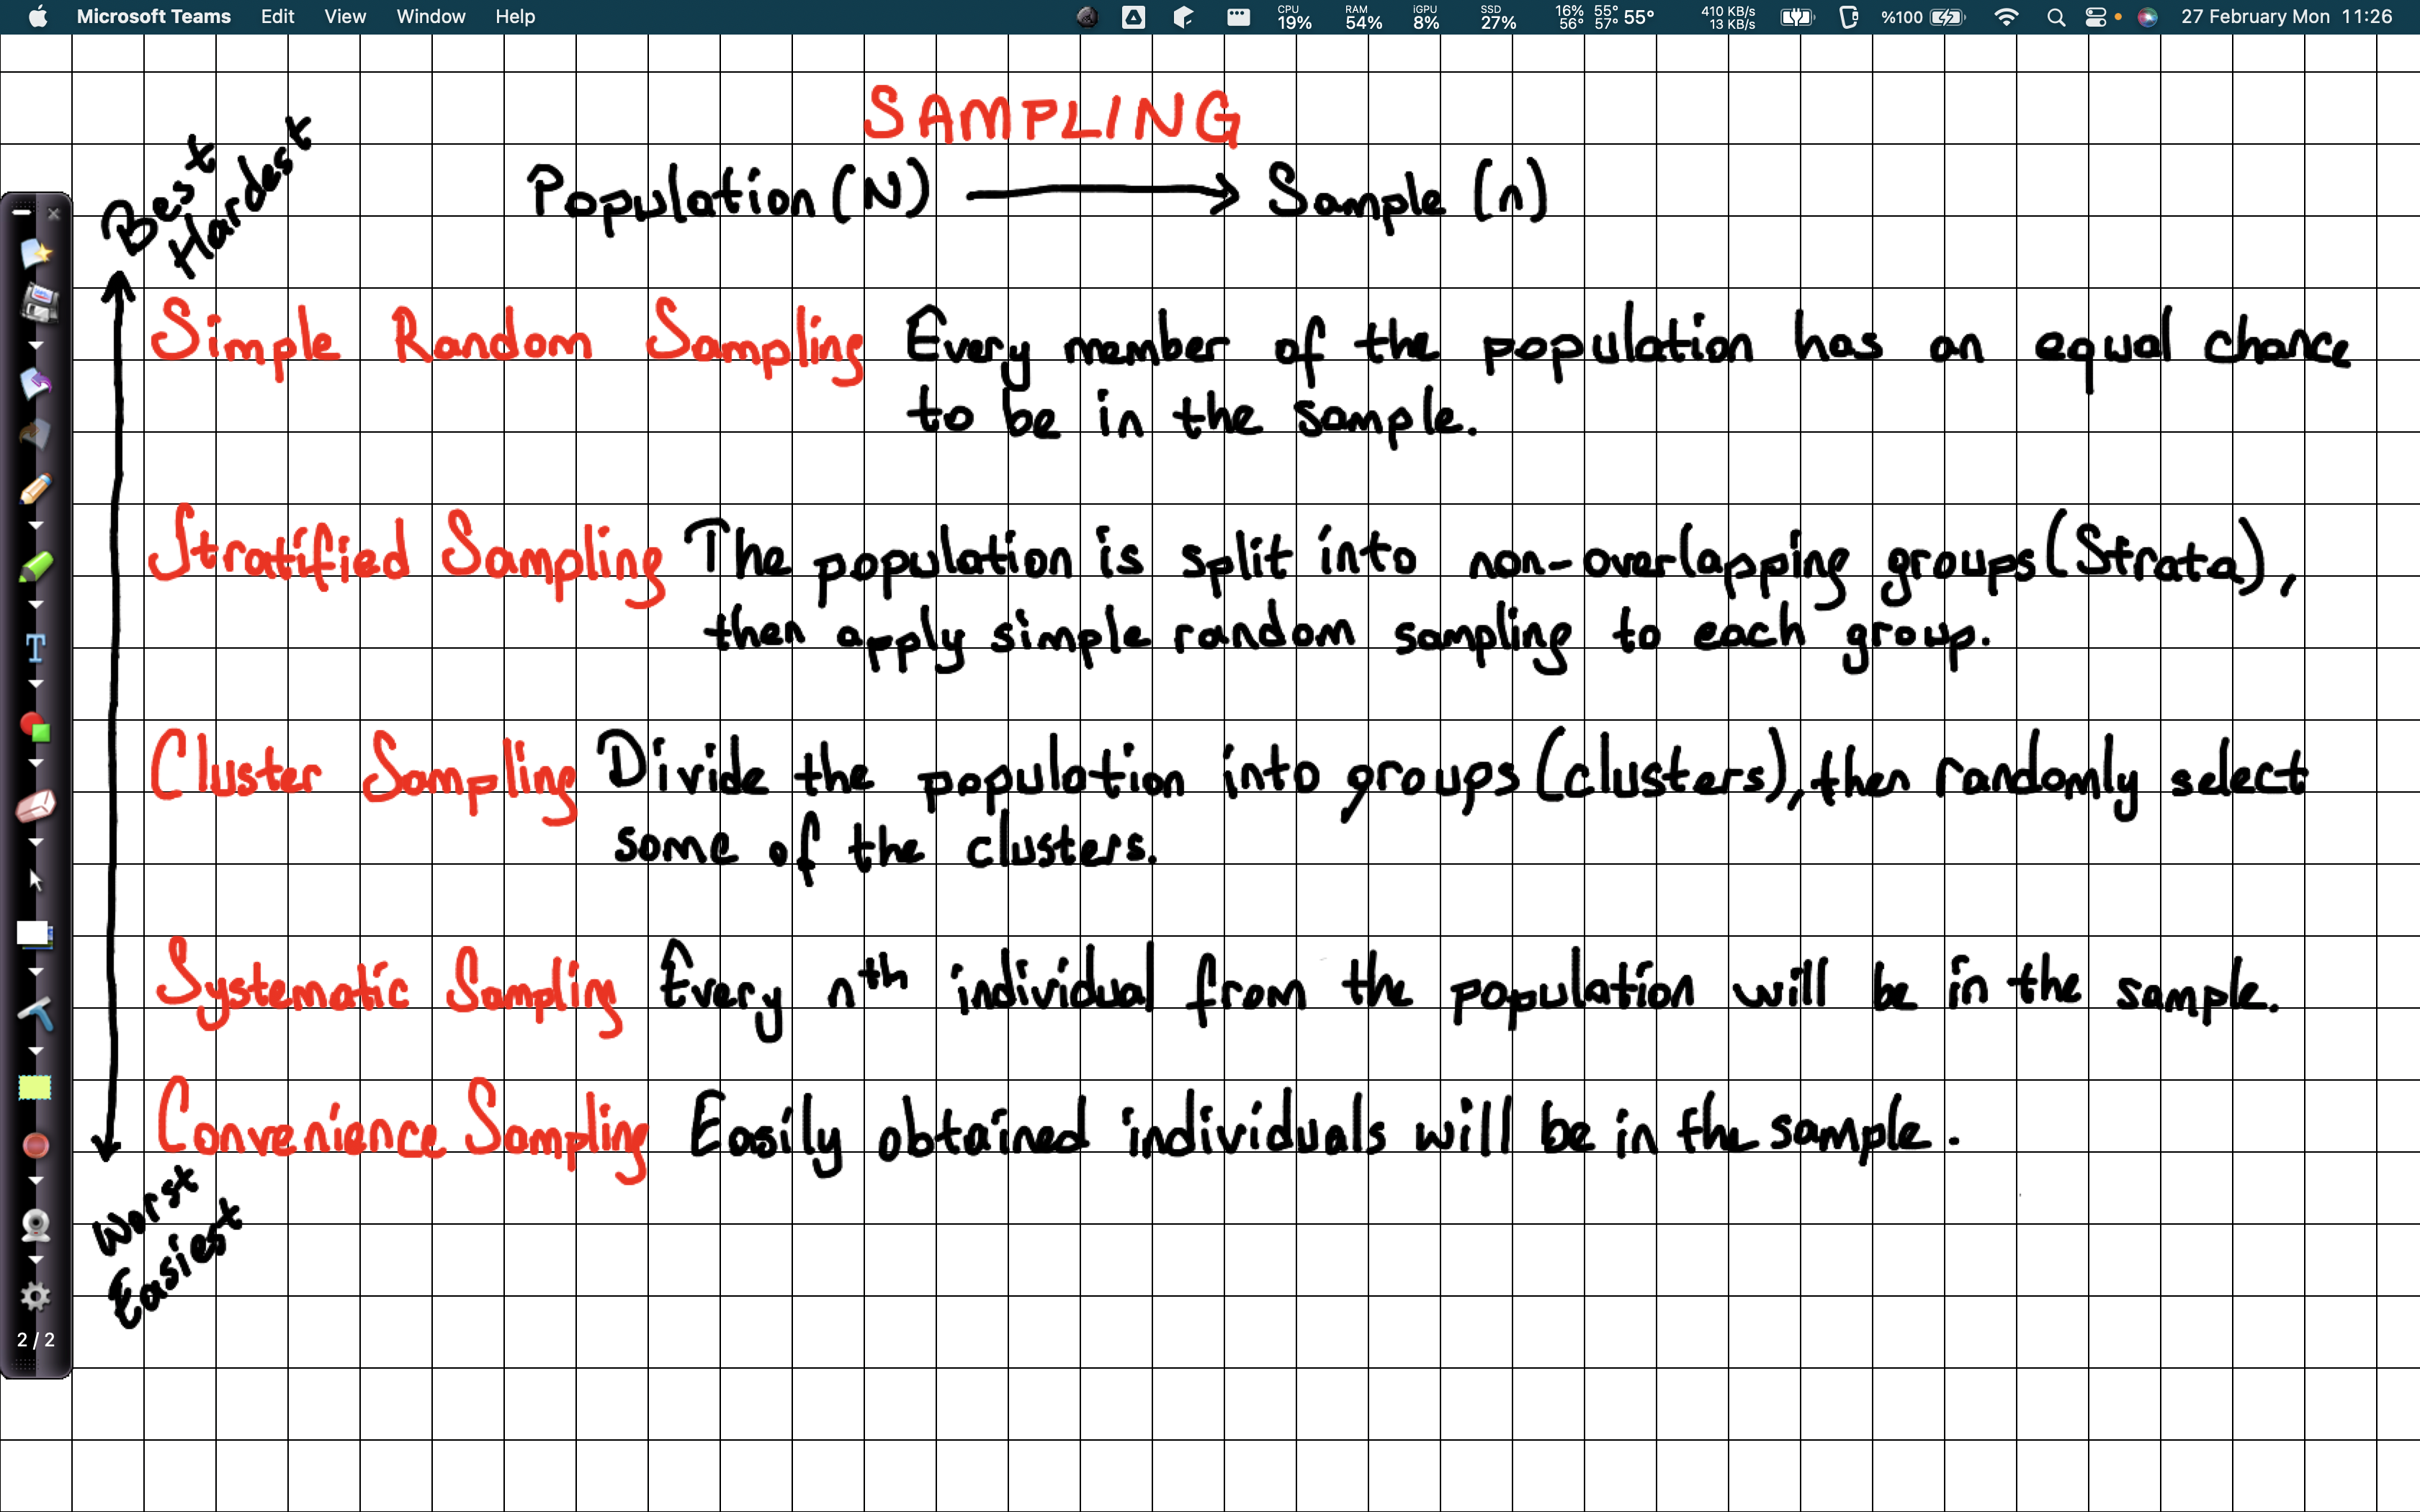 Microsoft Teams Edit View Window Help CPU 19% RAM 54% iGPU 8% SSD 27% 16% 56° 55° 57° 55° 410 KB/s 13 KB/s %100 27 February Mon 11:26
SAMPLING
Best
Hardest
Population (N) → Sample (n)
Simple Random Sampling Every member of the population has an equal chance
to be in the sample.
Stratified Sampling The population is split into non-overlapping groups (Strata),
then apply simple random sampling to each group.
Cluster Sampling Divide the population into groups (clusters), then randomly select
some of the clusters.
Systematic Sampling Every nth individual from the population will be in the sample.
Convenience Sampling Easily obtained individuals will be in the sample.
Worst
Easiest
2 / 2